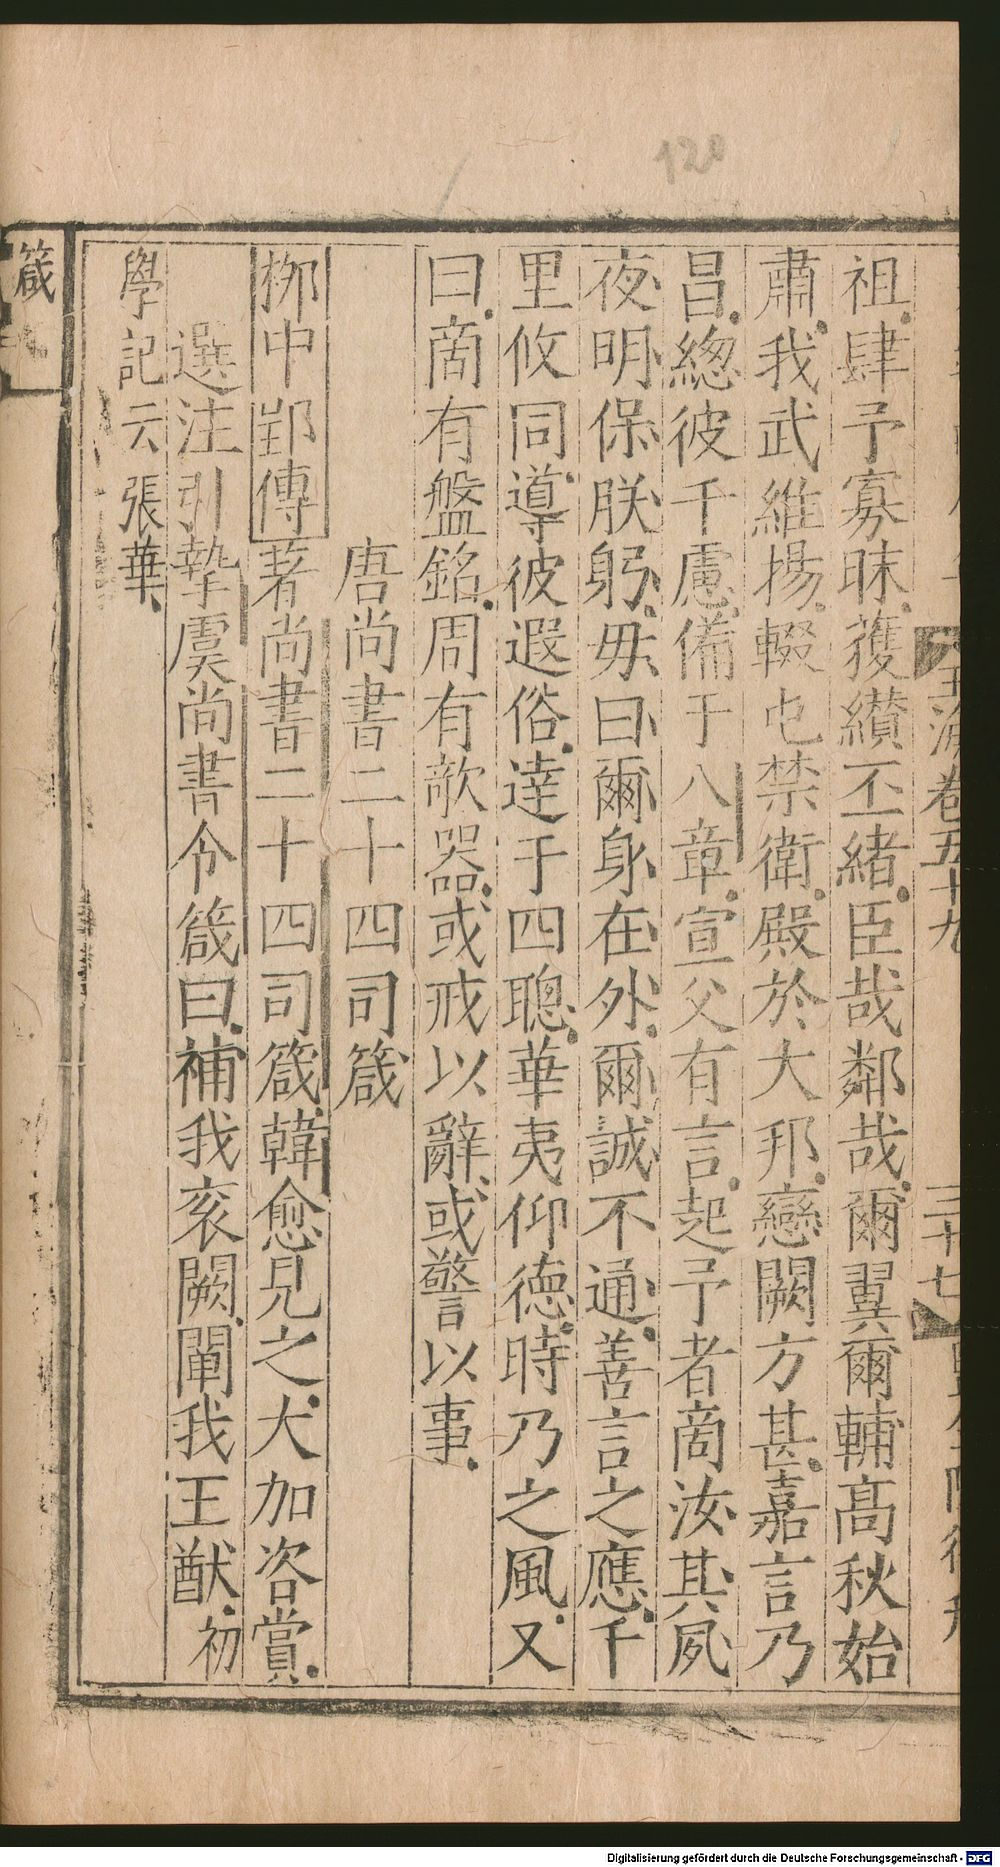 120
玉海卷五十九 三十七
祖肆予寡昧獲纘丕緒臣哉鄰哉爾翼爾輔髙秋始
肅我武維揚輟屯禁衛殿於大邦戀闕方甚嘉言乃
昌總彼千慮備于八章宣父有言起予者啇汝其夙
夜明保朕躬毋曰爾身在外爾誠不通善言之應千
里攸同導彼遐俗達于四聰華夷仰德時乃之風又
曰啇有盤銘周有欹器或戒以辭或警以事
唐尚書二十四司箴
栁中郢傳著尚書二十四司箴韓愈見之大加咨賞
選注引摯虞尚書令箴曰補我衮闕闡我王猷初
學記云張華
箴
Digitalisierung gefördert durch die Deutsche Forschungsgemeinschaft - DFG